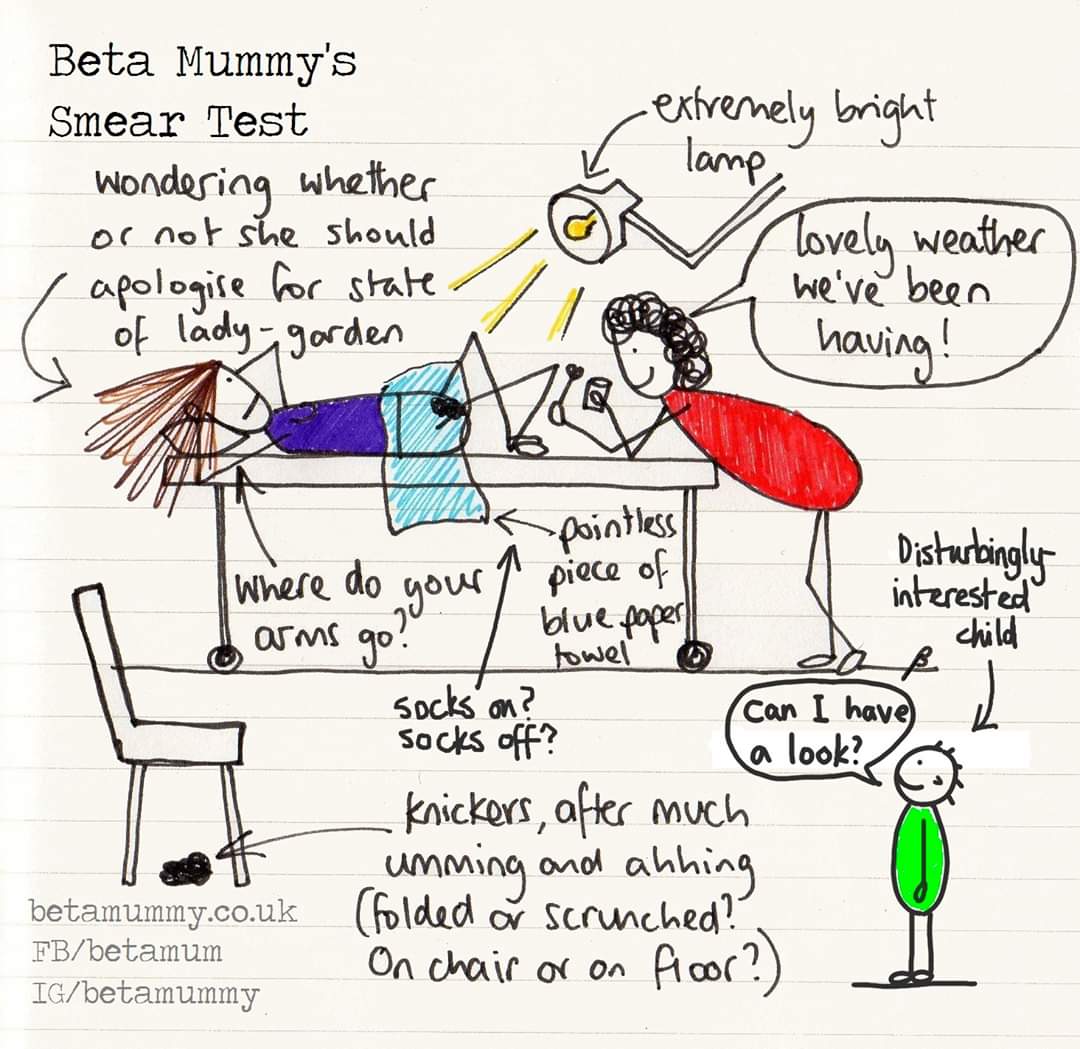 Beta Mummy's
Smear Test
extremely bright
lamp
wondering whether
or not she should
apologise for state
of lady-garden
lovely weather
we've been
having!
where do your
arms go?
pointless
piece of
blue paper
towel
Disturbingly
interested
child
socks on?
socks off?
can I have
a look?
knickers, after much
umming and ahhing
(folded or scrunched?
On chair or on floor?)
betamummy.co.uk
FB/betamum
IG/betamummy